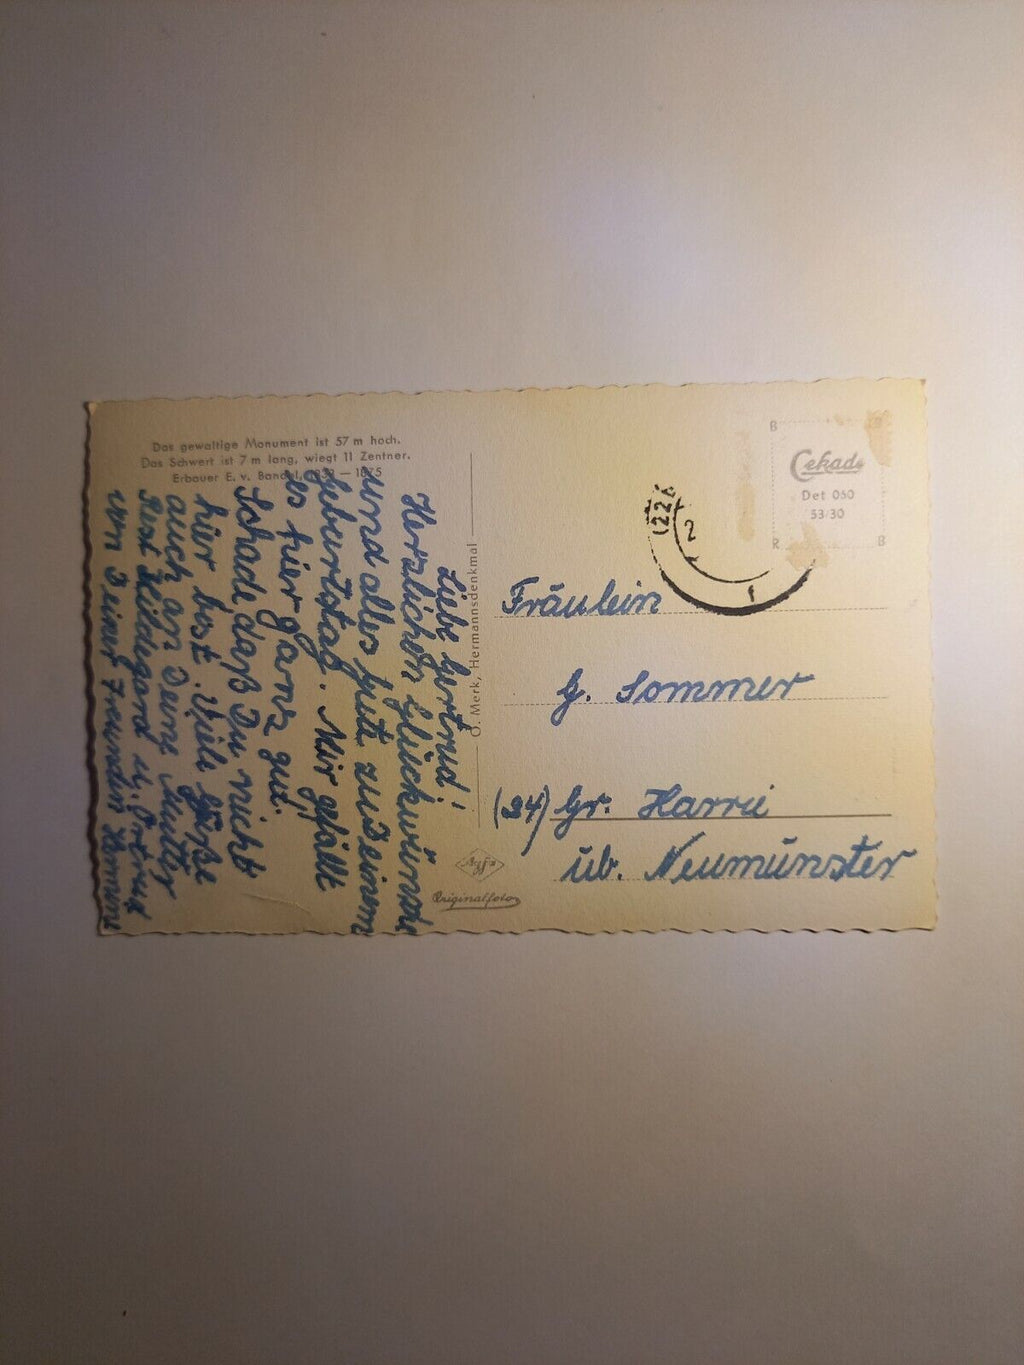 Das gewaltige Monument ist 57 m hoch.
Das Schwert ist 7 m lang, wiegt 11 Zentner.
Erbauer E. v. Bandel, 1838 — 1875
Liebe Gertrud!
Herzlichen Glückwünsche
und alles Gute zu Deinem
Geburtstag. Mir gefällt
es hier ganz gut.
Schade daß Du nicht
hier bost. Viele Grüße
auch an Deine Mutter
Hildegard u.
von Deiner Freundin
O. Merk, Hermannsdenkmal
Agfa
Originalfoto
B
Cekade
Det 050
53/30
R B
(22
2
Fräulein
G. Sommer
(24) Gr. Harrie
üb. Neumünster